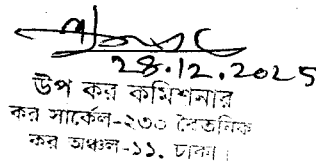 28.12.2025
উপ কর কমিশনার
কর সার্কেল-২৩০ বৈতনিক
কর অঞ্চল-১১, ঢাকা।